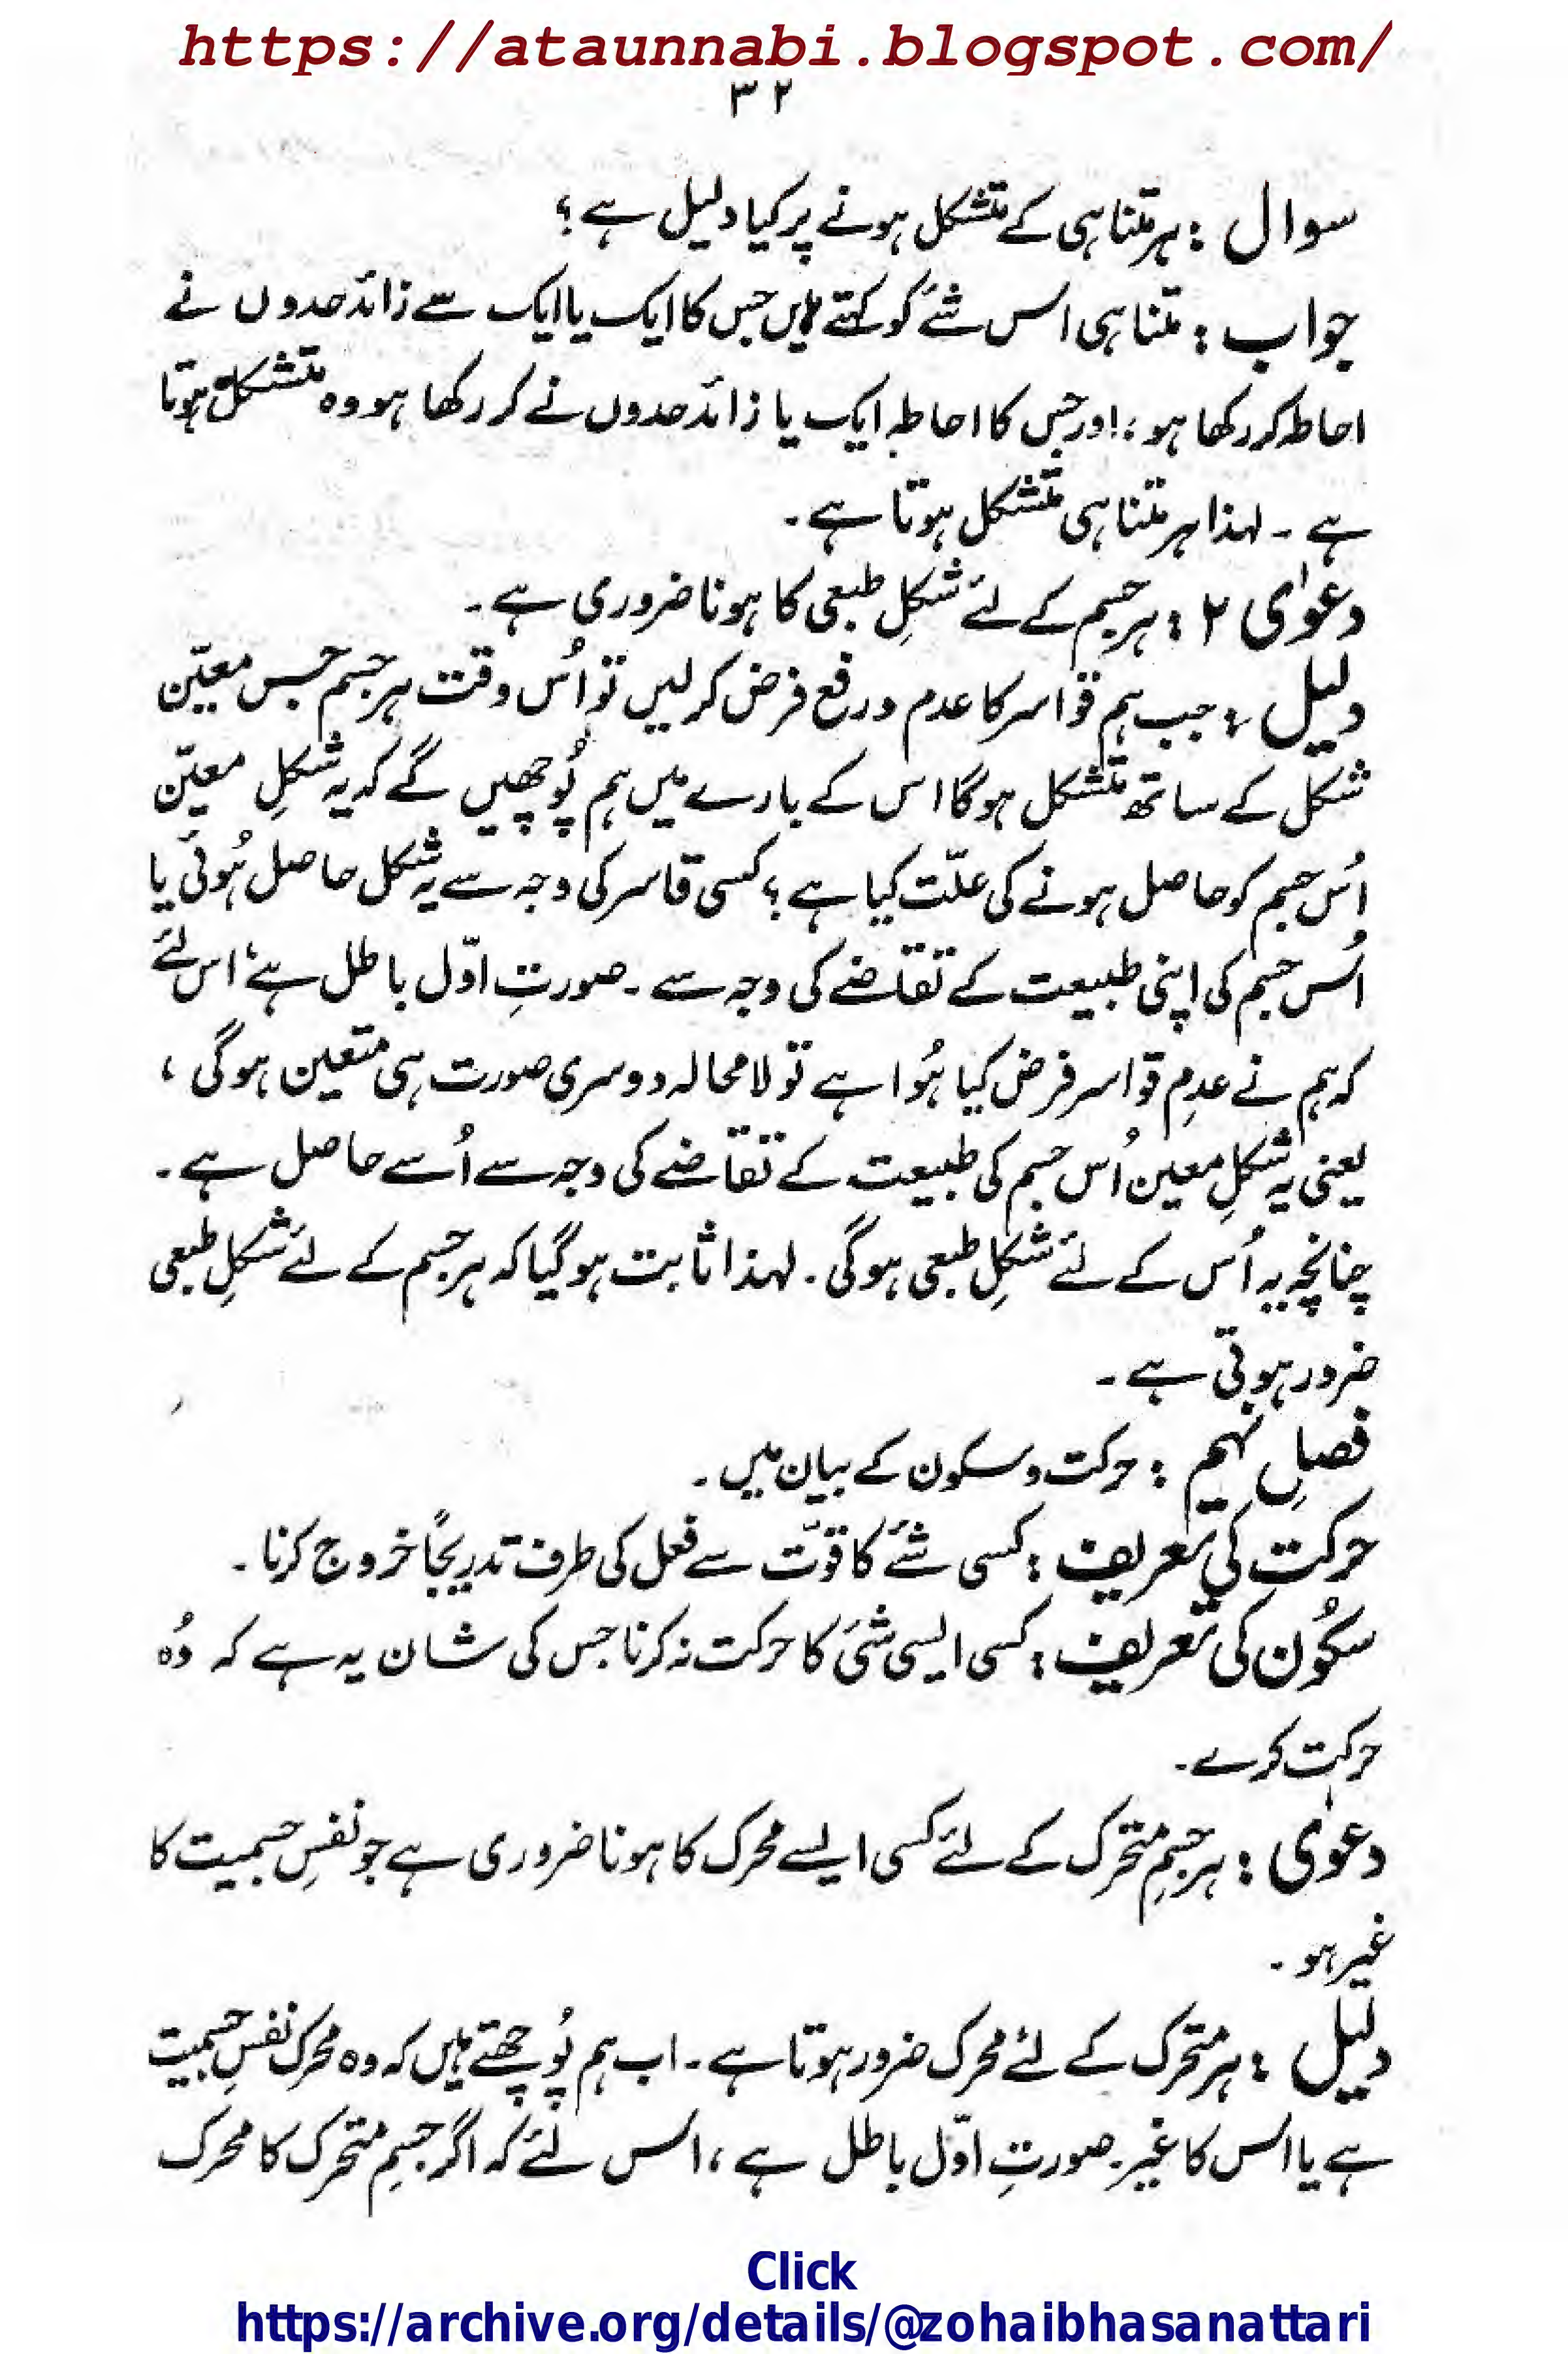 https://ataunnabi.blogspot.com/
۳۲
سوال : ہر متناہی کے متشکل ہونے پر کیا دلیل ہے ؟
جواب : متناہی اس شئے کو کہتے ہیں جس کا ایک یا ایک سے زائد حدوں نے
احاطہ کر رکھا ہو، اور جس کا احاطہ ایک یا زائد حدوں نے کر رکھا ہو وہ متشکل ہوتا
ہے ۔ لہذا ہر متناہی متشکل ہوتا ہے ۔
دعوٰی ۲ : ہر جسم کے لئے شکلِ طبعی کا ہونا ضروری ہے ۔
دلیل : جب ہم قواسر کا عدم و رفع فرض کر لیں تو اُس وقت ہر جسم جس معیّن
شکل کے ساتھ متشکل ہوگا اس کے بارے میں ہم پُوچھیں گے کہ یہ شکلِ معیّن
اُس جسم کو حاصل ہونے کی علّت کیا ہے ؟ کسی قاسر کی وجہ سے یہ شکل حاصل ہُوئی یا
اُس جسم کی اپنی طبیعت کے تقاضے کی وجہ سے ۔ صورتِ اوّل باطل ہے، اس لئے
کہ ہم نے عدمِ قواسر فرض کیا ہُوا ہے تو لا محالہ دوسری صورت ہی متعین ہوگی ،
یعنی یہ شکلِ معین اُس جسم کی طبیعت کے تقاضے کی وجہ سے اُسے حاصل ہے ۔
چنانچہ یہ اُس کے لئے شکلِ طبعی ہوگی ۔ لہذا ثابت ہوگیا کہ ہر جسم کے لئے شکلِ طبعی
ضرور ہوتی ہے ۔
فصلِ نہم : حرکت و سکون کے بیان میں ۔
حرکت کی تعریف : کسی شئے کا قوّت سے فعل کی طرف تدریجاً خروج کرنا ۔
سکُون کی تعریف : کسی ایسی شئ کا حرکت نہ کرنا جس کی شان یہ ہے کہ وُہ
حرکت کرے ۔
دعوٰی : ہر جسمِ متحرک کے لئے کسی ایسے محرک کا ہونا ضروری ہے جو نفسِ جسمیت کا
غیر ہو ۔
دلیل : ہر متحرک کے لئے محرک ضرور ہوتا ہے ۔ اب ہم پُوچھتے ہیں کہ وہ محرک نفسِ جسمیت
ہے یا اس کا غیر ۔ صورتِ اوّل باطل ہے ، اس لئے کہ اگر جسمِ متحرک کا محرک
Click
https://archive.org/details/@zohaibhasanattari